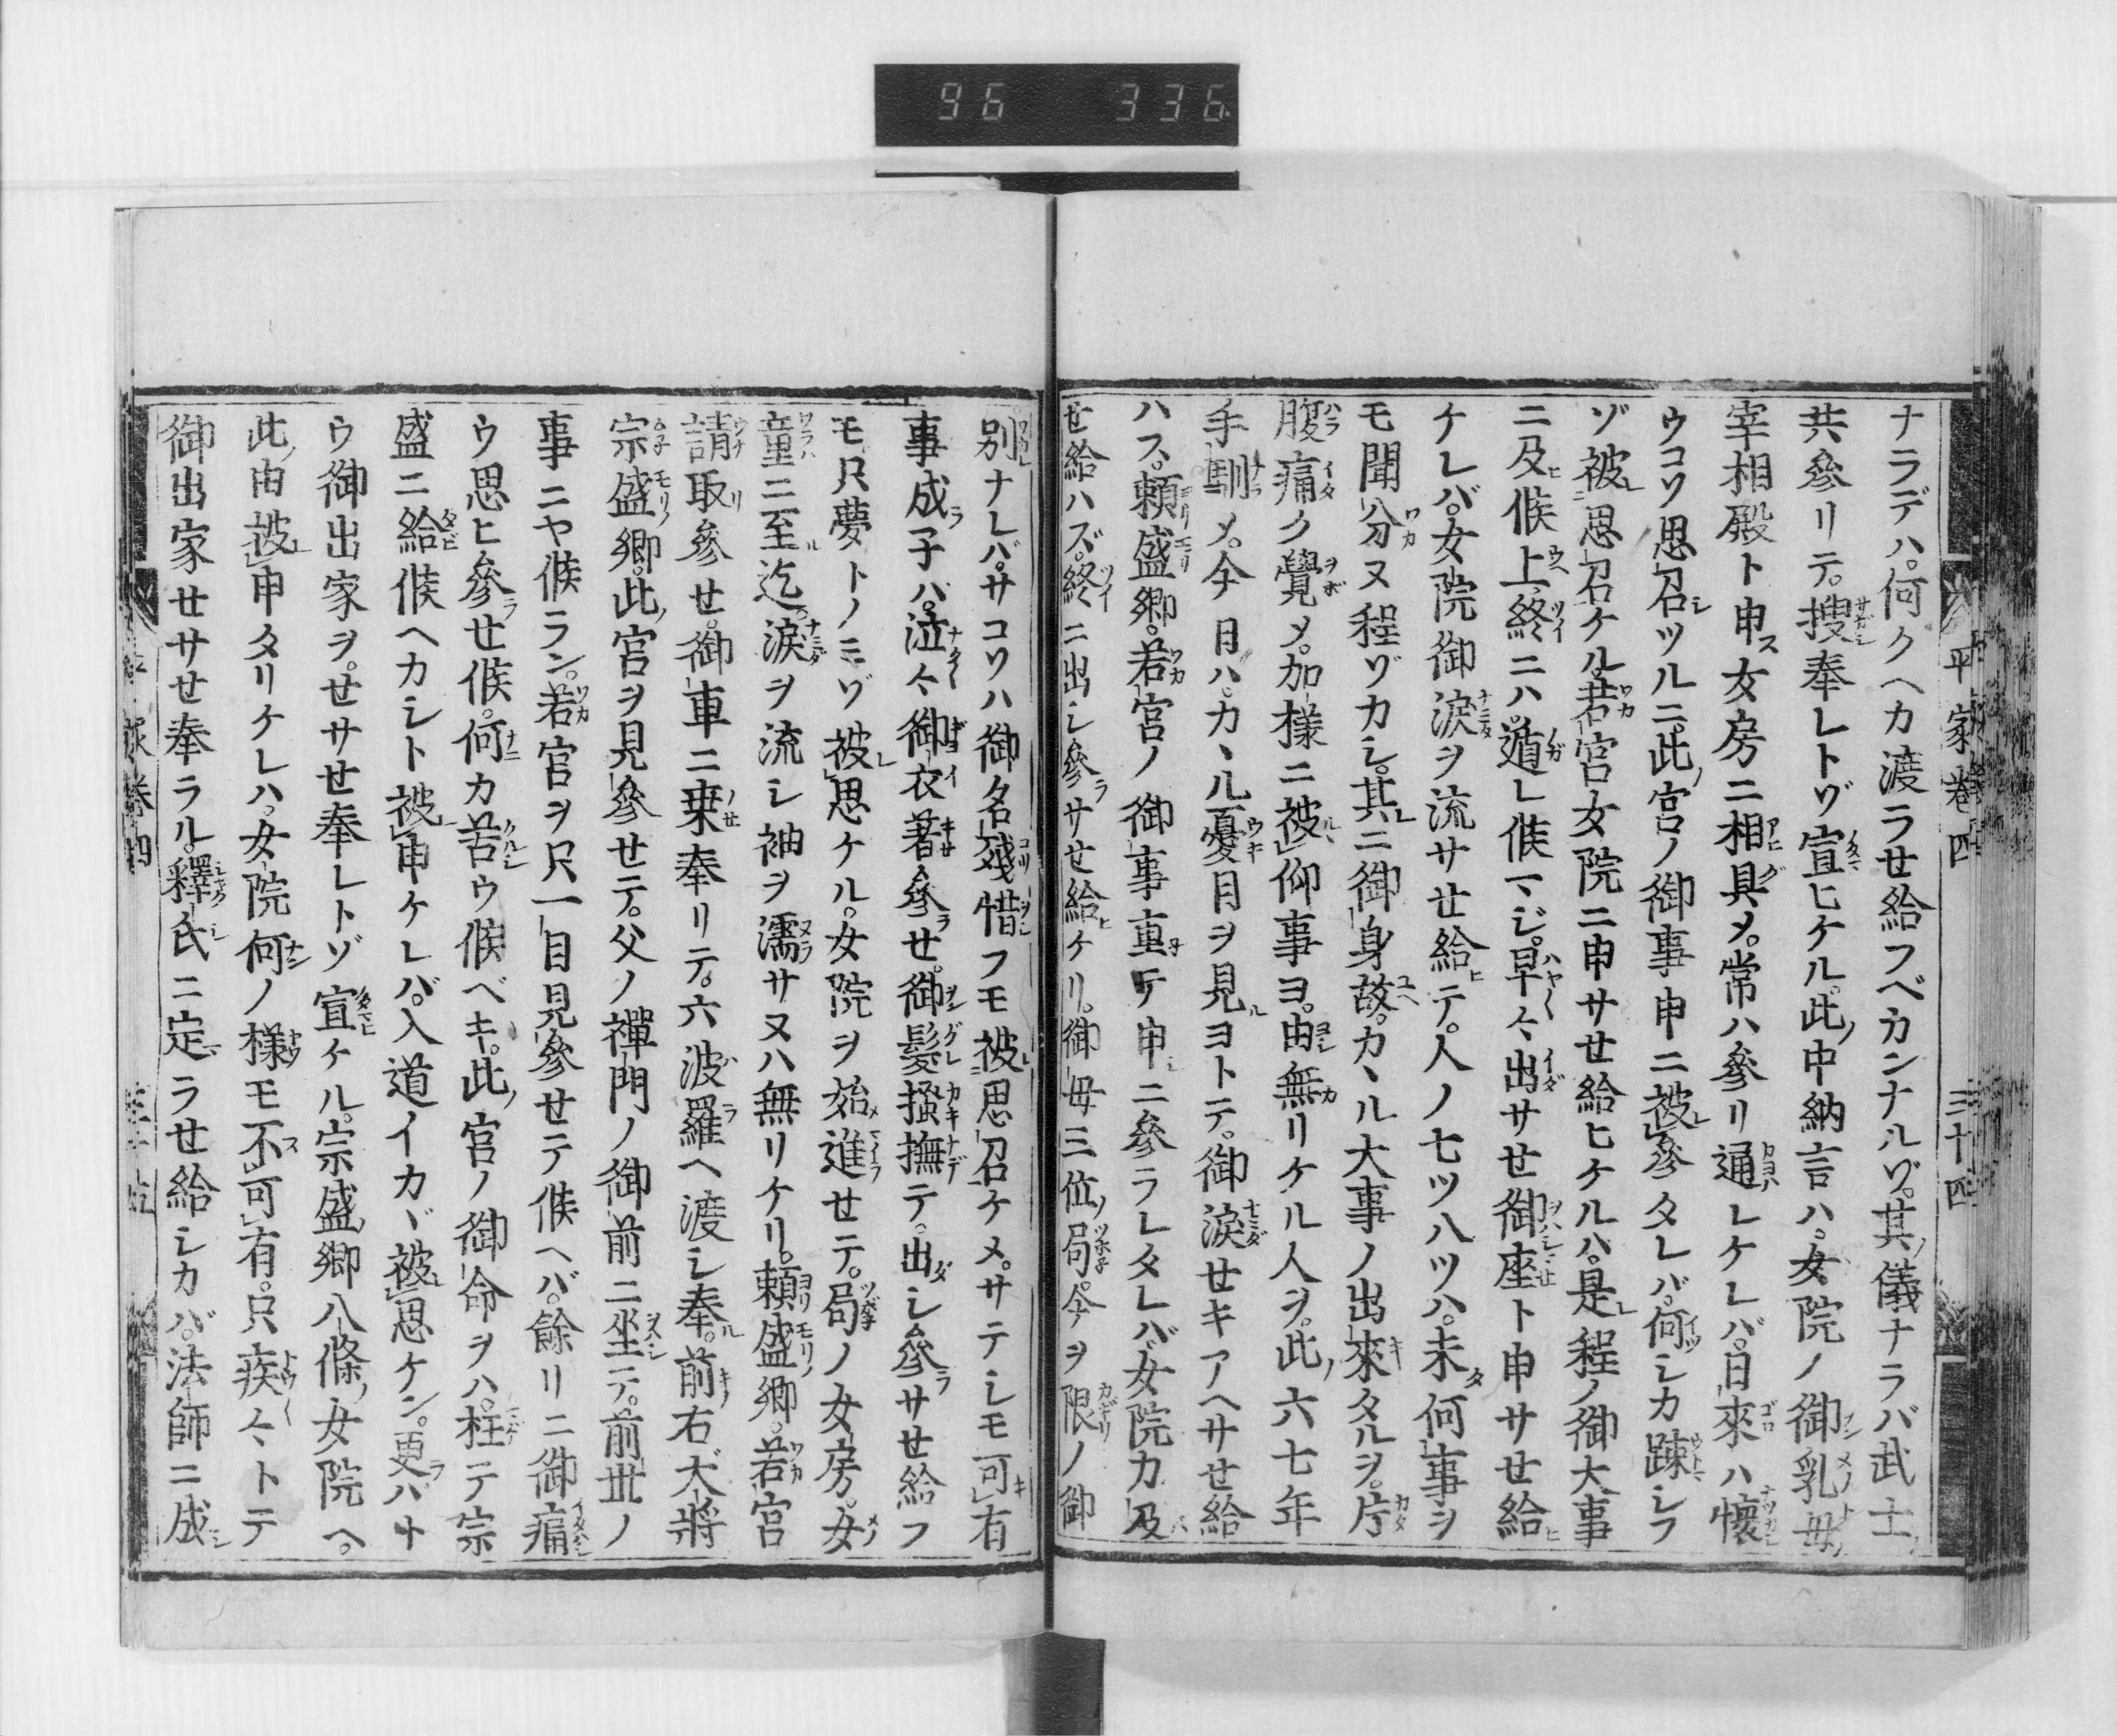 96 336
平家巻四 三十四
ナラデハ。何クヘカ渡ラせ給フベカンナルゾ。其儀ナラバ武士
共參リテ。搜奉レトゾ宣ヒケル。此中納言ハ。女院ノ御乳母
宰相殿ト申ス女房ニ相具メ。常ハ參リ通レケレバ。日來ハ懷
ウコソ思召シツルニ。此宮ノ御事申ニ被參タレバ。何シカ踈シフ
ゾ被思召ケル。若宮女院ニ申サせ給ヒケルハ。是程ノ御大事
ニ及ヒ候上。終ニハ遁レ候マジ。早々出サせ御座ト申サせ給ヒ
ケレバ。女院御淚ヲ流サせ給ヒテ。人ノ七ツ八ツハ。未何事ヲ
モ聞分ヌ程ゾカシ。其ニ御身故。カヽル大事ノ出來タルヲ。片
腹痛ク覺メ。加樣ニ被仰事ヨ。由無リケル人ヲ。此六七年
手馴メ。今日ハ。カヽル憂目ヲ見ルヨトテ。御淚せキアヘサせ給
ハス。賴盛卿。若宮ノ御事重テ申ニ參ラレタレバ。女院力及バ
せ給ハズ。終ニ出シ參ラサせ給ヒケリ。御母三位ノ局。今ヲ限ノ御
別ナレバ。サコソハ御名殘惜フモ被思召ケメ。サテシモ可有
事成子バ。泣々御衣著參ラせ。御髮搔撫テ。出シ參ラサせ給フ
モ。只夢トノミゾ被思ケル。女院ヲ始進せテ。局ノ女房。女
童ニ至ル迄。淚ヲ流シ袖ヲ濡サヌハ無リケリ。賴盛卿。若宮
請取リ參せ。御車ニ乗奉リテ。六波羅ヘ渡シ奉ル。前右大將
宗盛卿。此宮ヲ見參せテ。父ノ禪門ノ御前ニ坐テ。前世ノ
事ニヤ候ラン。若宮ヲ只一目見參せテ候ヘバ。餘リニ御痛
ウ思ヒ參ラせ候。何カ苦ウ候ベキ。此宮ノ御命ヲハ。枉テ宗
盛ニ給候ヘカシト被申ケレバ。入道イカヾ被思ケン。更ハ廾
ウ御出家ヲ。せサせ奉レトゾ宣ケル。宗盛卿八條ノ女院ヘ。
此由被申タリケレハ。女院何ノ樣モ不可有。只疾々トテ
御出家せサせ奉ラル。釋氏ニ定ラせ給シカバ。法師ニ成シ